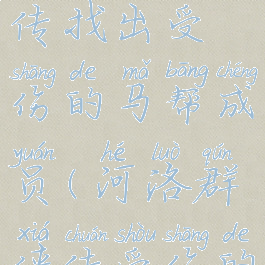 传找出受
shāng de mǎ bāng chéng
伤的马帮成
yuán hé luò qún
员(河洛群
xiá chuán shòu shāng de
侠传受伤的